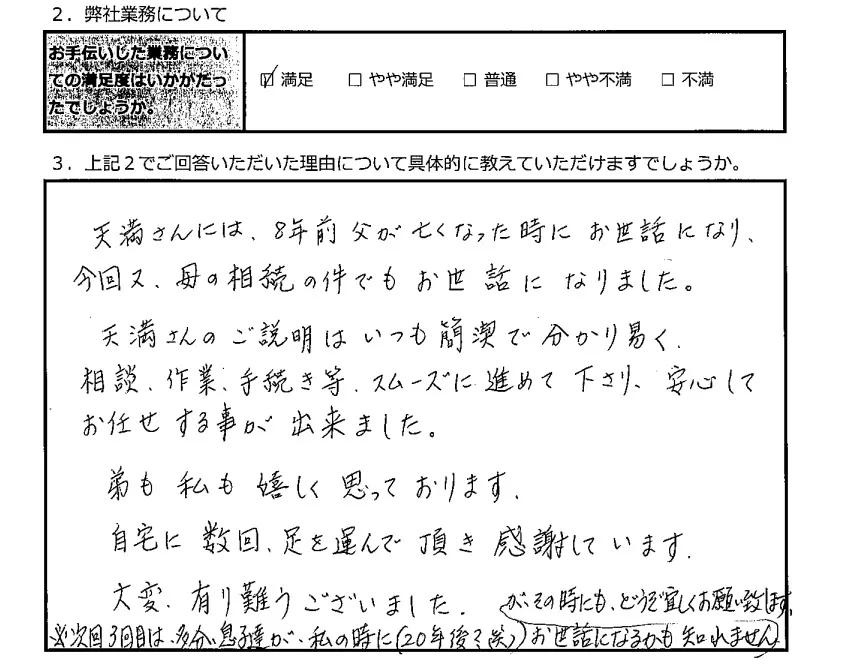 2．弊社業務について
お手伝いした業務につい
ての満足度はいかがだっ
たでしょうか。
☑ 満足 □ やや満足 □ 普通 □ やや不満 □ 不満
3．上記2でご回答いただいた理由について具体的に教えていただけますでしょうか。
天満さんには、8年前父が亡くなった時にお世話になり、
今回又、母の相続の件でもお世話になりました。
天満さんのご説明はいつも簡潔で分かり易く、
相談、作業、手続き等、スムーズに進めて下さり、安心して
お任せする事が出来ました。
弟も私も嬉しく思っております。
自宅に数回、足を運んで頂き感謝しています。
大変、有り難うございました。
※次回3回目は、多分、息子達が、私の時に(20年後?笑)お世話になるかも知れません
が、その時にも、どうぞ宜しくお願い致します。